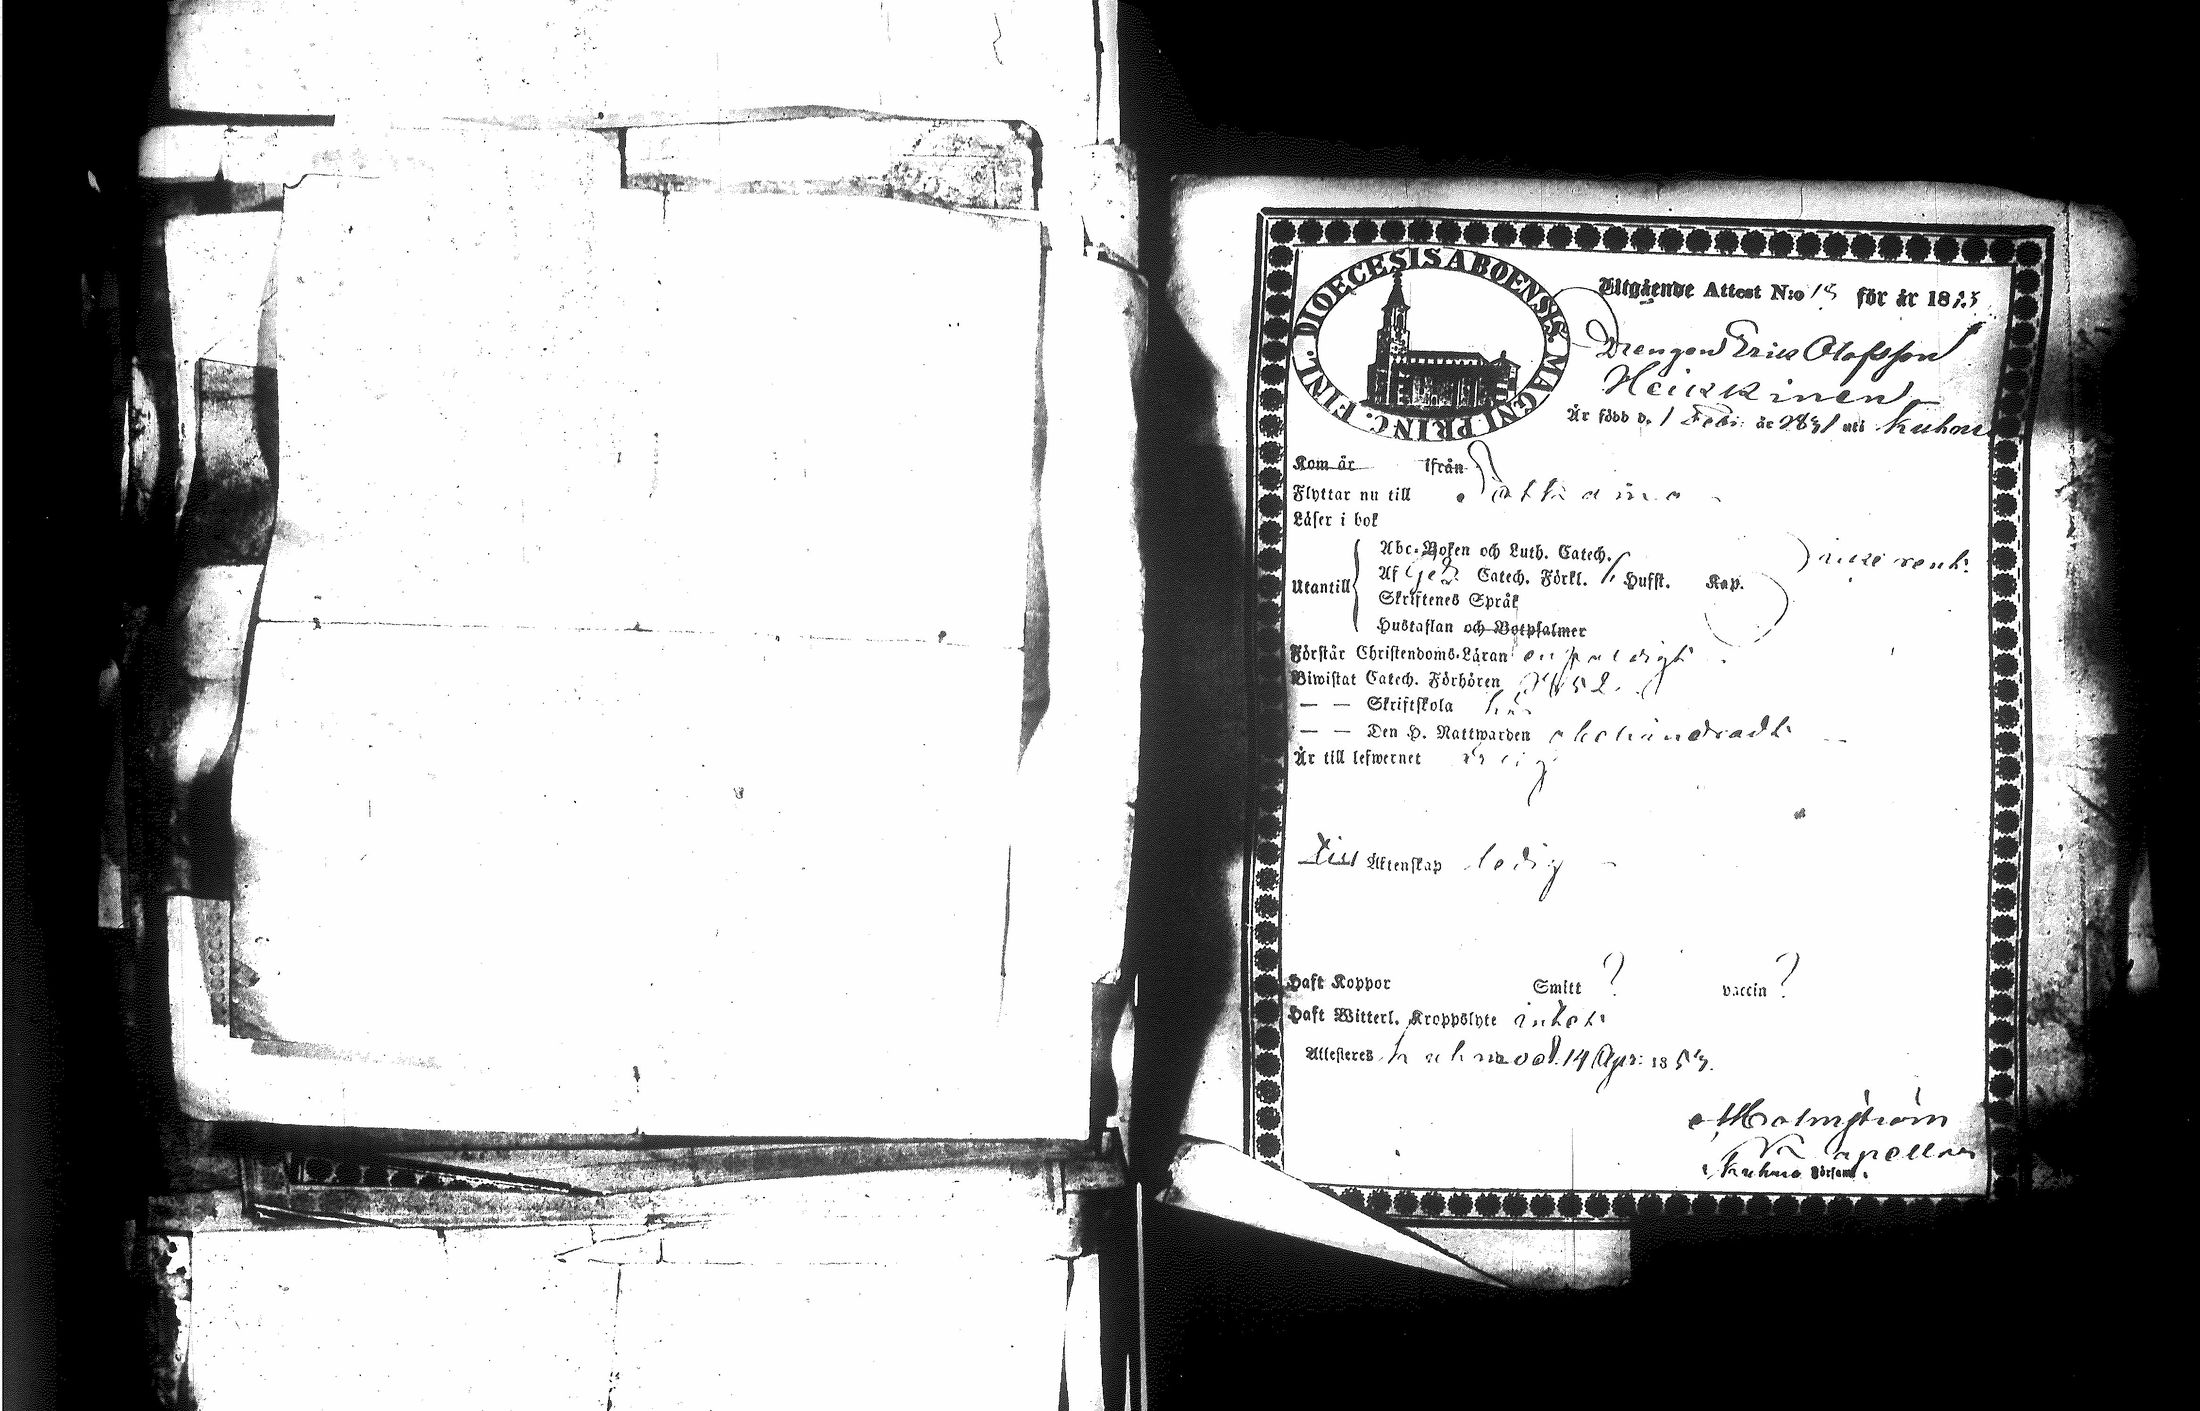 DIOECESIS ABOENSIS. MAGNI PRINC. FINL.
Utgående Attest N:o 15 för år 1853
Drengen Eric Olofsson
Heikkinen
Är född d. 1 Febr: år 1831 uti Kuhmo
Kom år ifrån
Flyttar nu till Paldamo
Läser i bok
Abc-Boken och Luth. Catech.
Utantill
Af Catech. Förkl. Hufst. Kap.
Skriftenes Språk
Hustaflan och Botpsalmer
Förstår Christendoms-Läran enfaldigt
Biwistat Catech. Förhören 1852.
— — Skriftskola här
— — Den H. Nattwarden obehindradt
Är till lefwernet
Till Äktenskap ledig
Haft Koppor Smitt ? vaccin ?
Haft Witterl. Kroppslyte intet
Attesteras Kuhmo d. 14 Apr: 1853.
Malmström
Kapellan
i Kuhmo Församl.